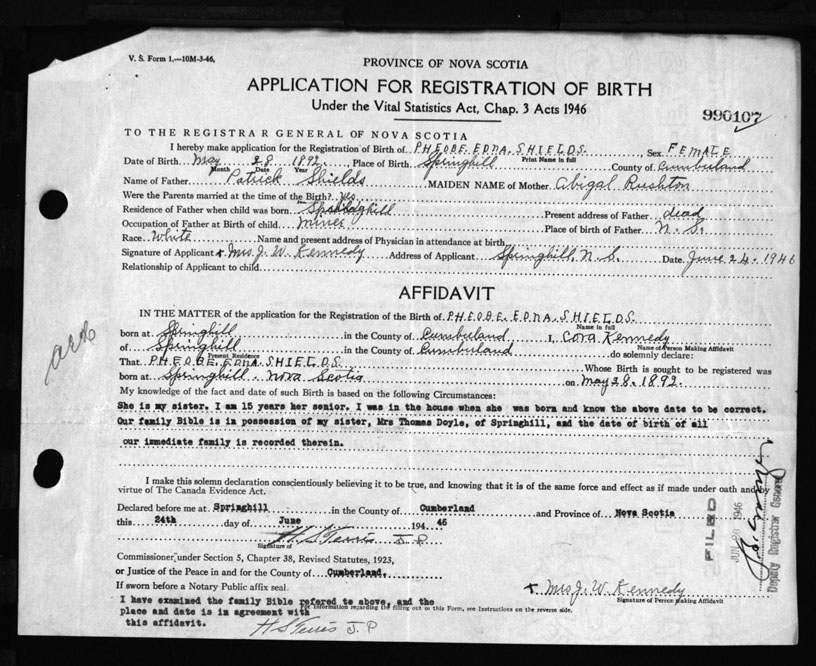 V. S. Form 1.—10M-3-46.
PROVINCE OF NOVA SCOTIA
APPLICATION FOR REGISTRATION OF BIRTH
Under the Vital Statistics Act, Chap. 3 Acts 1946
990107
TO THE REGISTRAR GENERAL OF NOVA SCOTIA
I hereby make application for the Registration of Birth of PHEOBE EDNA SHIELDS Sex FEMALE
Print Name in full
Date of Birth May 28 1892, Place of Birth Springhill County of Cumberland
Month Date Year
Name of Father Patrick Shields MAIDEN NAME of Mother Abigal Rushton
Were the Parents married at the time of the Birth? Yes
Residence of Father when child was born Springhill Present address of Father dead
Occupation of Father at Birth of child miner Place of birth of Father N. S.
Race White Name and present address of Physician in attendance at birth
Signature of Applicant x Mrs J. W. Kennedy Address of Applicant Springhill N. S. Date June 24 - 1946
Relationship of Applicant to child
AFFIDAVIT
IN THE MATTER of the application for the Registration of the Birth of PHEOBE EDNA SHIELDS
Name in full
born at Springhill in the County of Cumberland I, Cora Kennedy
Name of Person Making Affidavit
of Springhill in the County of Cumberland do solemnly declare:
Present Residence
That PHEOBE EDNA SHIELDS Whose Birth is sought to be registered was
born at Springhill, Nova Scotia on May 28. 1892.
My knowledge of the fact and date of such Birth is based on the following Circumstances:
She is my sister. I am 15 years her senior. I was in the house when she was born and know the above date to be correct.
Our family Bible is in possession of my sister, Mrs Thomas Doyle, of Springhill, and the date of birth of all
our immediate family is recorded therein.
I make this solemn declaration conscientiously believing it to be true, and knowing that it is of the same force and effect as if made under oath and by
virtue of The Canada Evidence Act.
Declared before me at Springhill in the County of Cumberland and Province of Nova Scotia
this 24th day of June 1946
H S Terris J. P
Signature of
Commissioner, under Section 5, Chapter 38, Revised Statutes, 1923,
or Justice of the Peace in and for the County of Cumberland.
If sworn before a Notary Public affix seal.
x Mrs J. W. Kennedy
Signature of Person Making Affidavit
For information regarding the filling out of this Form, see Instructions on the reverse side.
I have examined the family Bible refered to above, and the
place and date is in agreement with
this affidavit. H S Terris J. P
FILED
JUN 28 1946
Deputy Registrar General